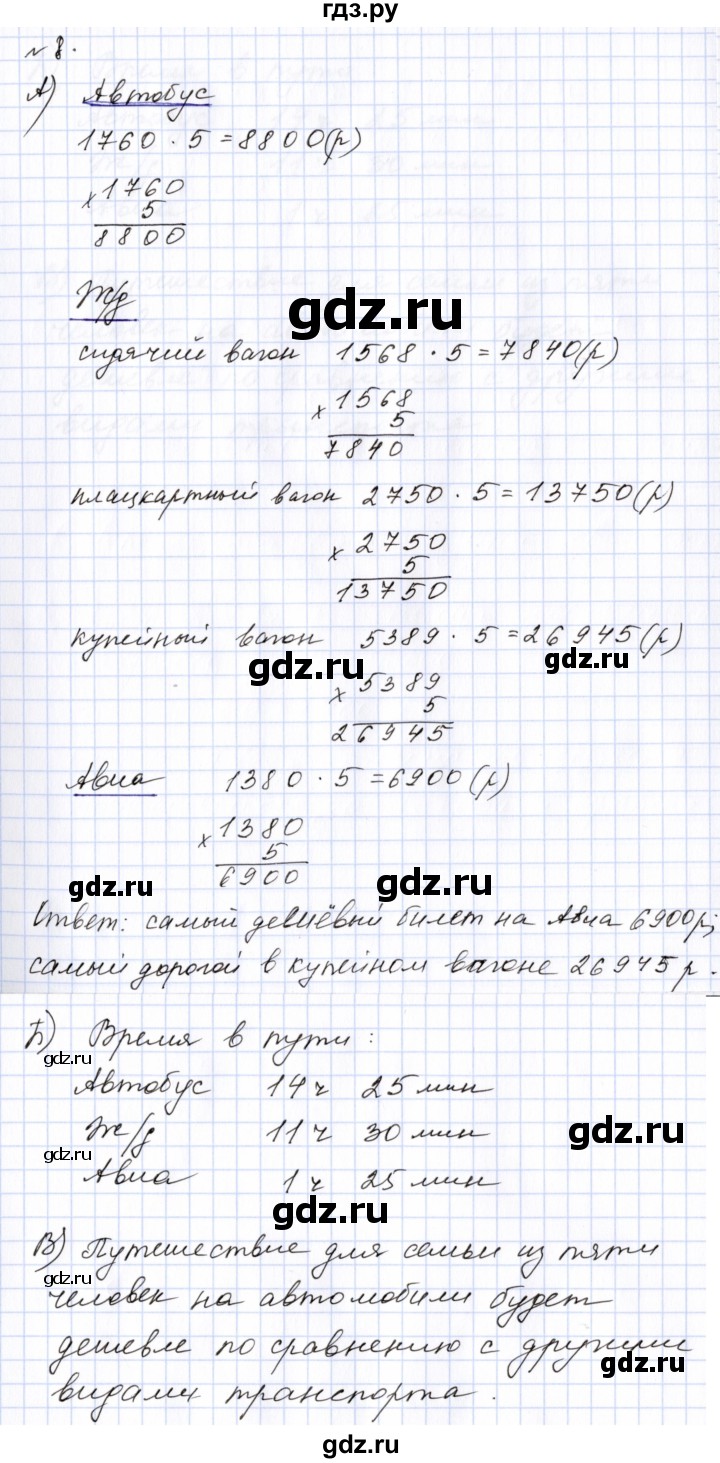 гдз.ру
№ 8.
А) Автобус
1760 · 5 = 8800 (р)
× 1760
5
8800
Ж/д
gdz.ru
сидячий вагон 1568 · 5 = 7840 (р)
× 1568
5
7840
плацкартный вагон 2750 · 5 = 13750 (р)
× 2750
5
13750
купейный вагон 5389 · 5 = 26945 (р)
gdz.ru
gdz.ru
× 5389
5
26945
Авиа 1380 · 5 = 6900 (р)
× 1380
5
6900
gdz.ru
gdz.ru
Ответ: самый дешёвый билет на Авиа 6900 р;
самый дорогой в купейном вагоне 26945 р.
Б) Время в пути:
gdz.ru
Автобус 14 ч 25 мин
Ж/д 11 ч 30 мин
gdz.ru
gdz.ru
Авиа 1 ч 25 мин
gdz.ru
В) Путешествие для семьи из пяти
gdz.ru
человек на автомобили будет
дешевле по сравнению с другими
gdz.ru
видами транспорта.
gdz.ru